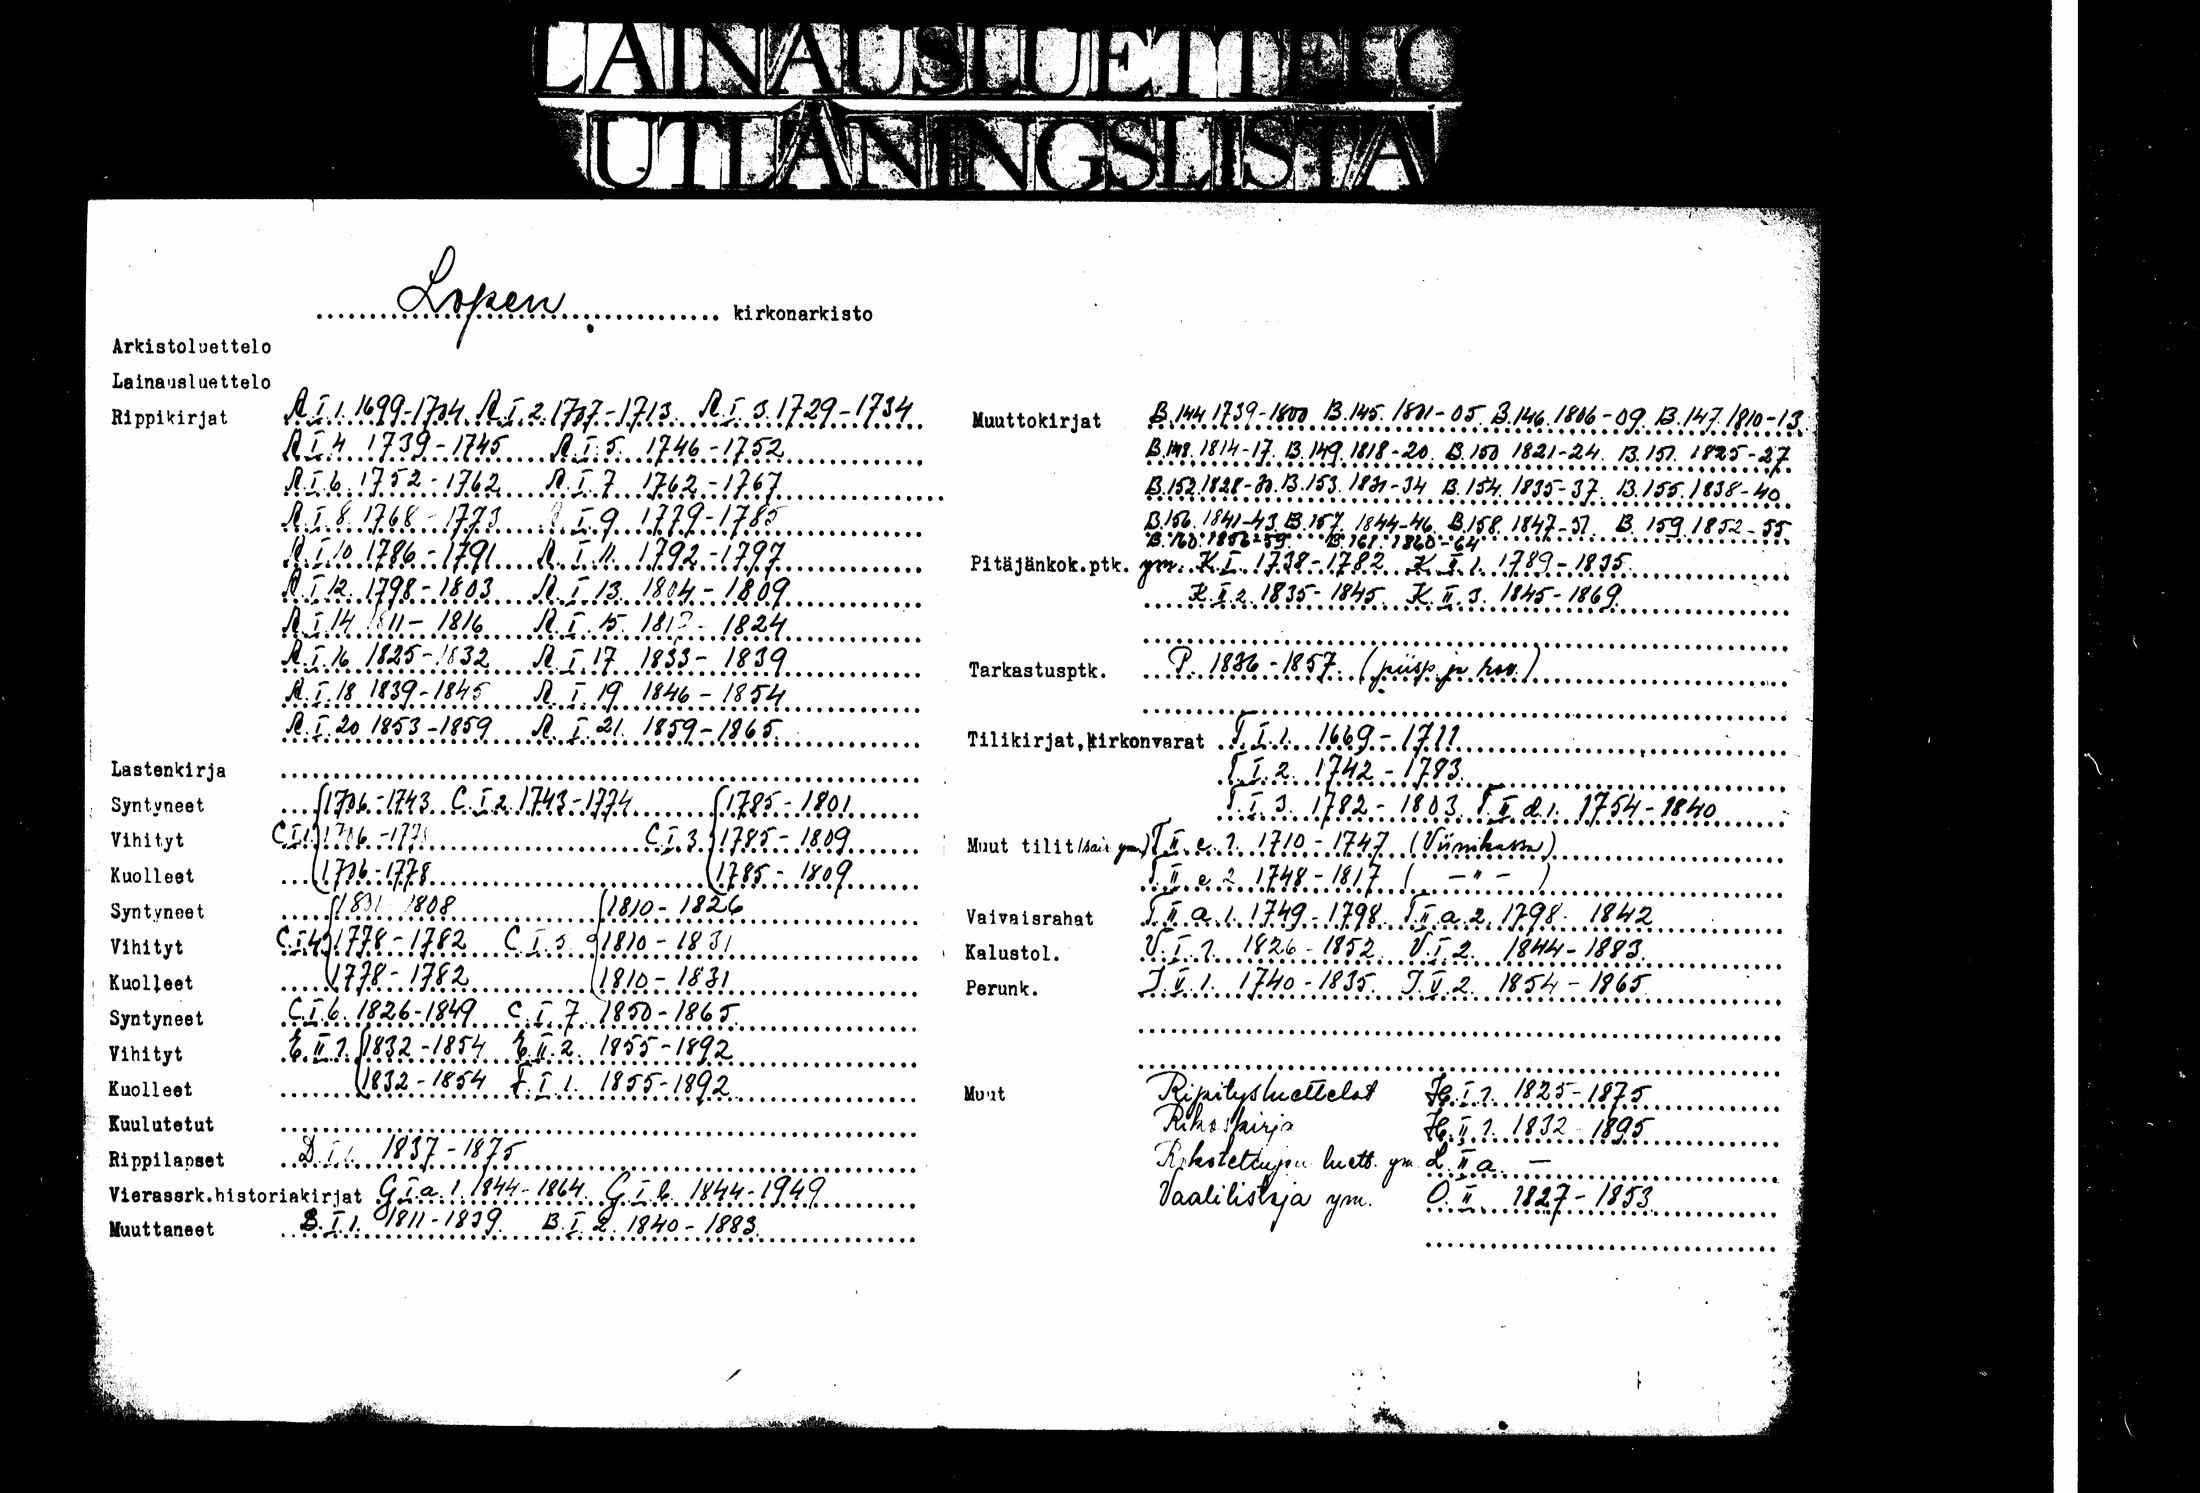 LAINAUSLUETTELO
UTLÅNINGSLISTA
Lopen kirkonarkisto
Arkistoluettelo
Lainausluettelo
Rippikirjat A.I.1. 1699-1704 A.I.2. 1707-1713. A.I.3. 1729-1734
A.I.4. 1739-1745 A.I.5. 1746-1752
A.I.6. 1752-1762 A.I.7 1762-1767
A.I.8. 1768-1773 A.I.9. 1779-1785
A.I.10 1786-1791 A.I.11. 1792-1797
A.I.12. 1798-1803 A.I.13. 1804-1809
A.I.14 1811-1816 A.I.15. 1817-1824
A.I.16 1825-1832 A.I.17 1833-1839
A.I.18 1839-1845 A.I.19 1846-1854
A.I.20 1853-1859 A.I.21. 1859-1865
Lastenkirja
Syntyneet 1706-1743 C.I.2. 1743-1774 1785-1801
Vihityt C.I.1. 1706-1778 C.I.3. 1785-1809
Kuolleet 1706-1778 1785-1809
Syntyneet 1801-1808 1810-1826
Vihityt C.I.4. 1778-1782 C.I.5. 1810-1831
Kuolleet 1778-1782 1810-1831
Syntyneet C.I.6. 1826-1849 C.I.7. 1850-1865
Vihityt E.II.1. 1832-1854 E.II.2. 1855-1892
Kuolleet 1832-1854 F.I.1. 1855-1892
Kuulutetut
Rippilapset D.I.1. 1837-1875
Vierassrk.historiakirjat G.I.a.1. 1844-1864. G.I.b. 1844-1949
Muuttaneet B.I.1. 1811-1839. B.I.2. 1840-1883.
Muuttokirjat B.144 1739-1800 B.145. 1801-05 B.146. 1806-09. B.147. 1810-13.
B.148. 1814-17. B.149. 1818-20. B.150 1821-24. B.151. 1825-27
B.152. 1828-30. B.153. 1831-34 B.154. 1835-37. B.155. 1838-40
B.156. 1841-43. B.157. 1844-46. B.158. 1847-51. B.159. 1852-55
B.160. 1856-59. B.161. 1860-64
Pitäjänkok.ptk. ym. K.I. 1738-1782 K.II.1. 1789-1835
K.II.2. 1835-1845 K.II.3. 1845-1869
Tarkastusptk. P. 1836-1857. (piisp. ja rov.)
Tilikirjat, kirkonvarat T.I.1. 1669-1711
T.I.2. 1742-1783.
T.I.3. 1782-1803. T.II.d.1. 1754-1840
Muut tilit T.II.e.1. 1710-1747 (Viinikassa)
T.II.e.2. 1748-1817 ( -"- )
Vaivaisrahat T.II.a.1. 1749-1798. T.II.a.2. 1798-1842
Kalustol. V.I.1. 1826-1852 V.I.2. 1844-1883.
Perunk. J.II.1. 1740-1835. J.II.2. 1854-1865
Muut Ripitysluettelot H.I.1. 1825-1875
Rikoskirja H.II.1. 1832-1895
luett. ym. L.II.a. -
Vaalilistoja ym. O.II. 1827-1853.